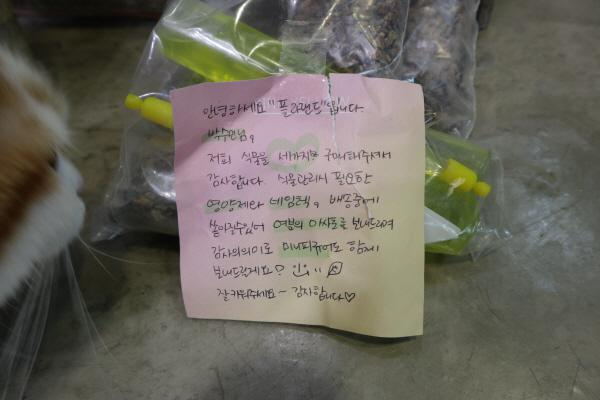 안녕하세요 "플라랜드"입니다.
박수민님,
저희 식물을 세가지를 구매해주셔서
감사합니다. 식물관리시 필요한
영양제와 네임텍, 배송중에
쏟아질수있어 여분의 마사토를 보내드리며
감사의의미로 미니피규어도 함께
보내드릴게요♡
잘키워주세요~ 감사합니다♡